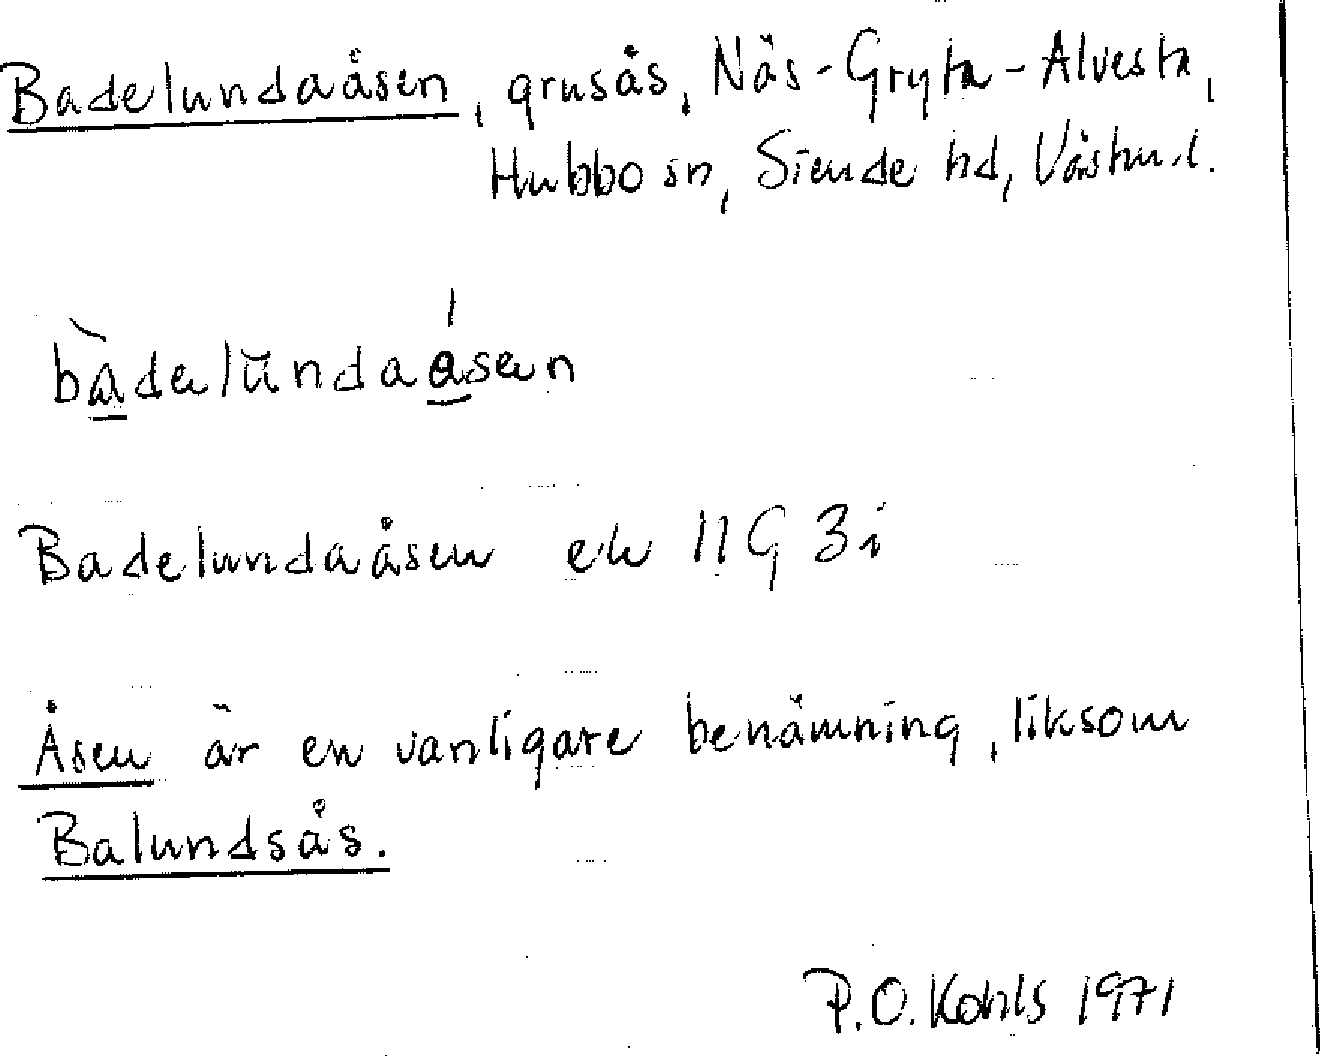 Badelundaåsen, grusås, Näs-Gryta-Alvesta,
Hubbo sn, Siende hd, Västm.l.
bàdelŭndaåsen
Badelundaåsen ek 11G 3i
Åsen är en vanligare benämning, liksom
Balundsås.
P.O. Kohls 1971